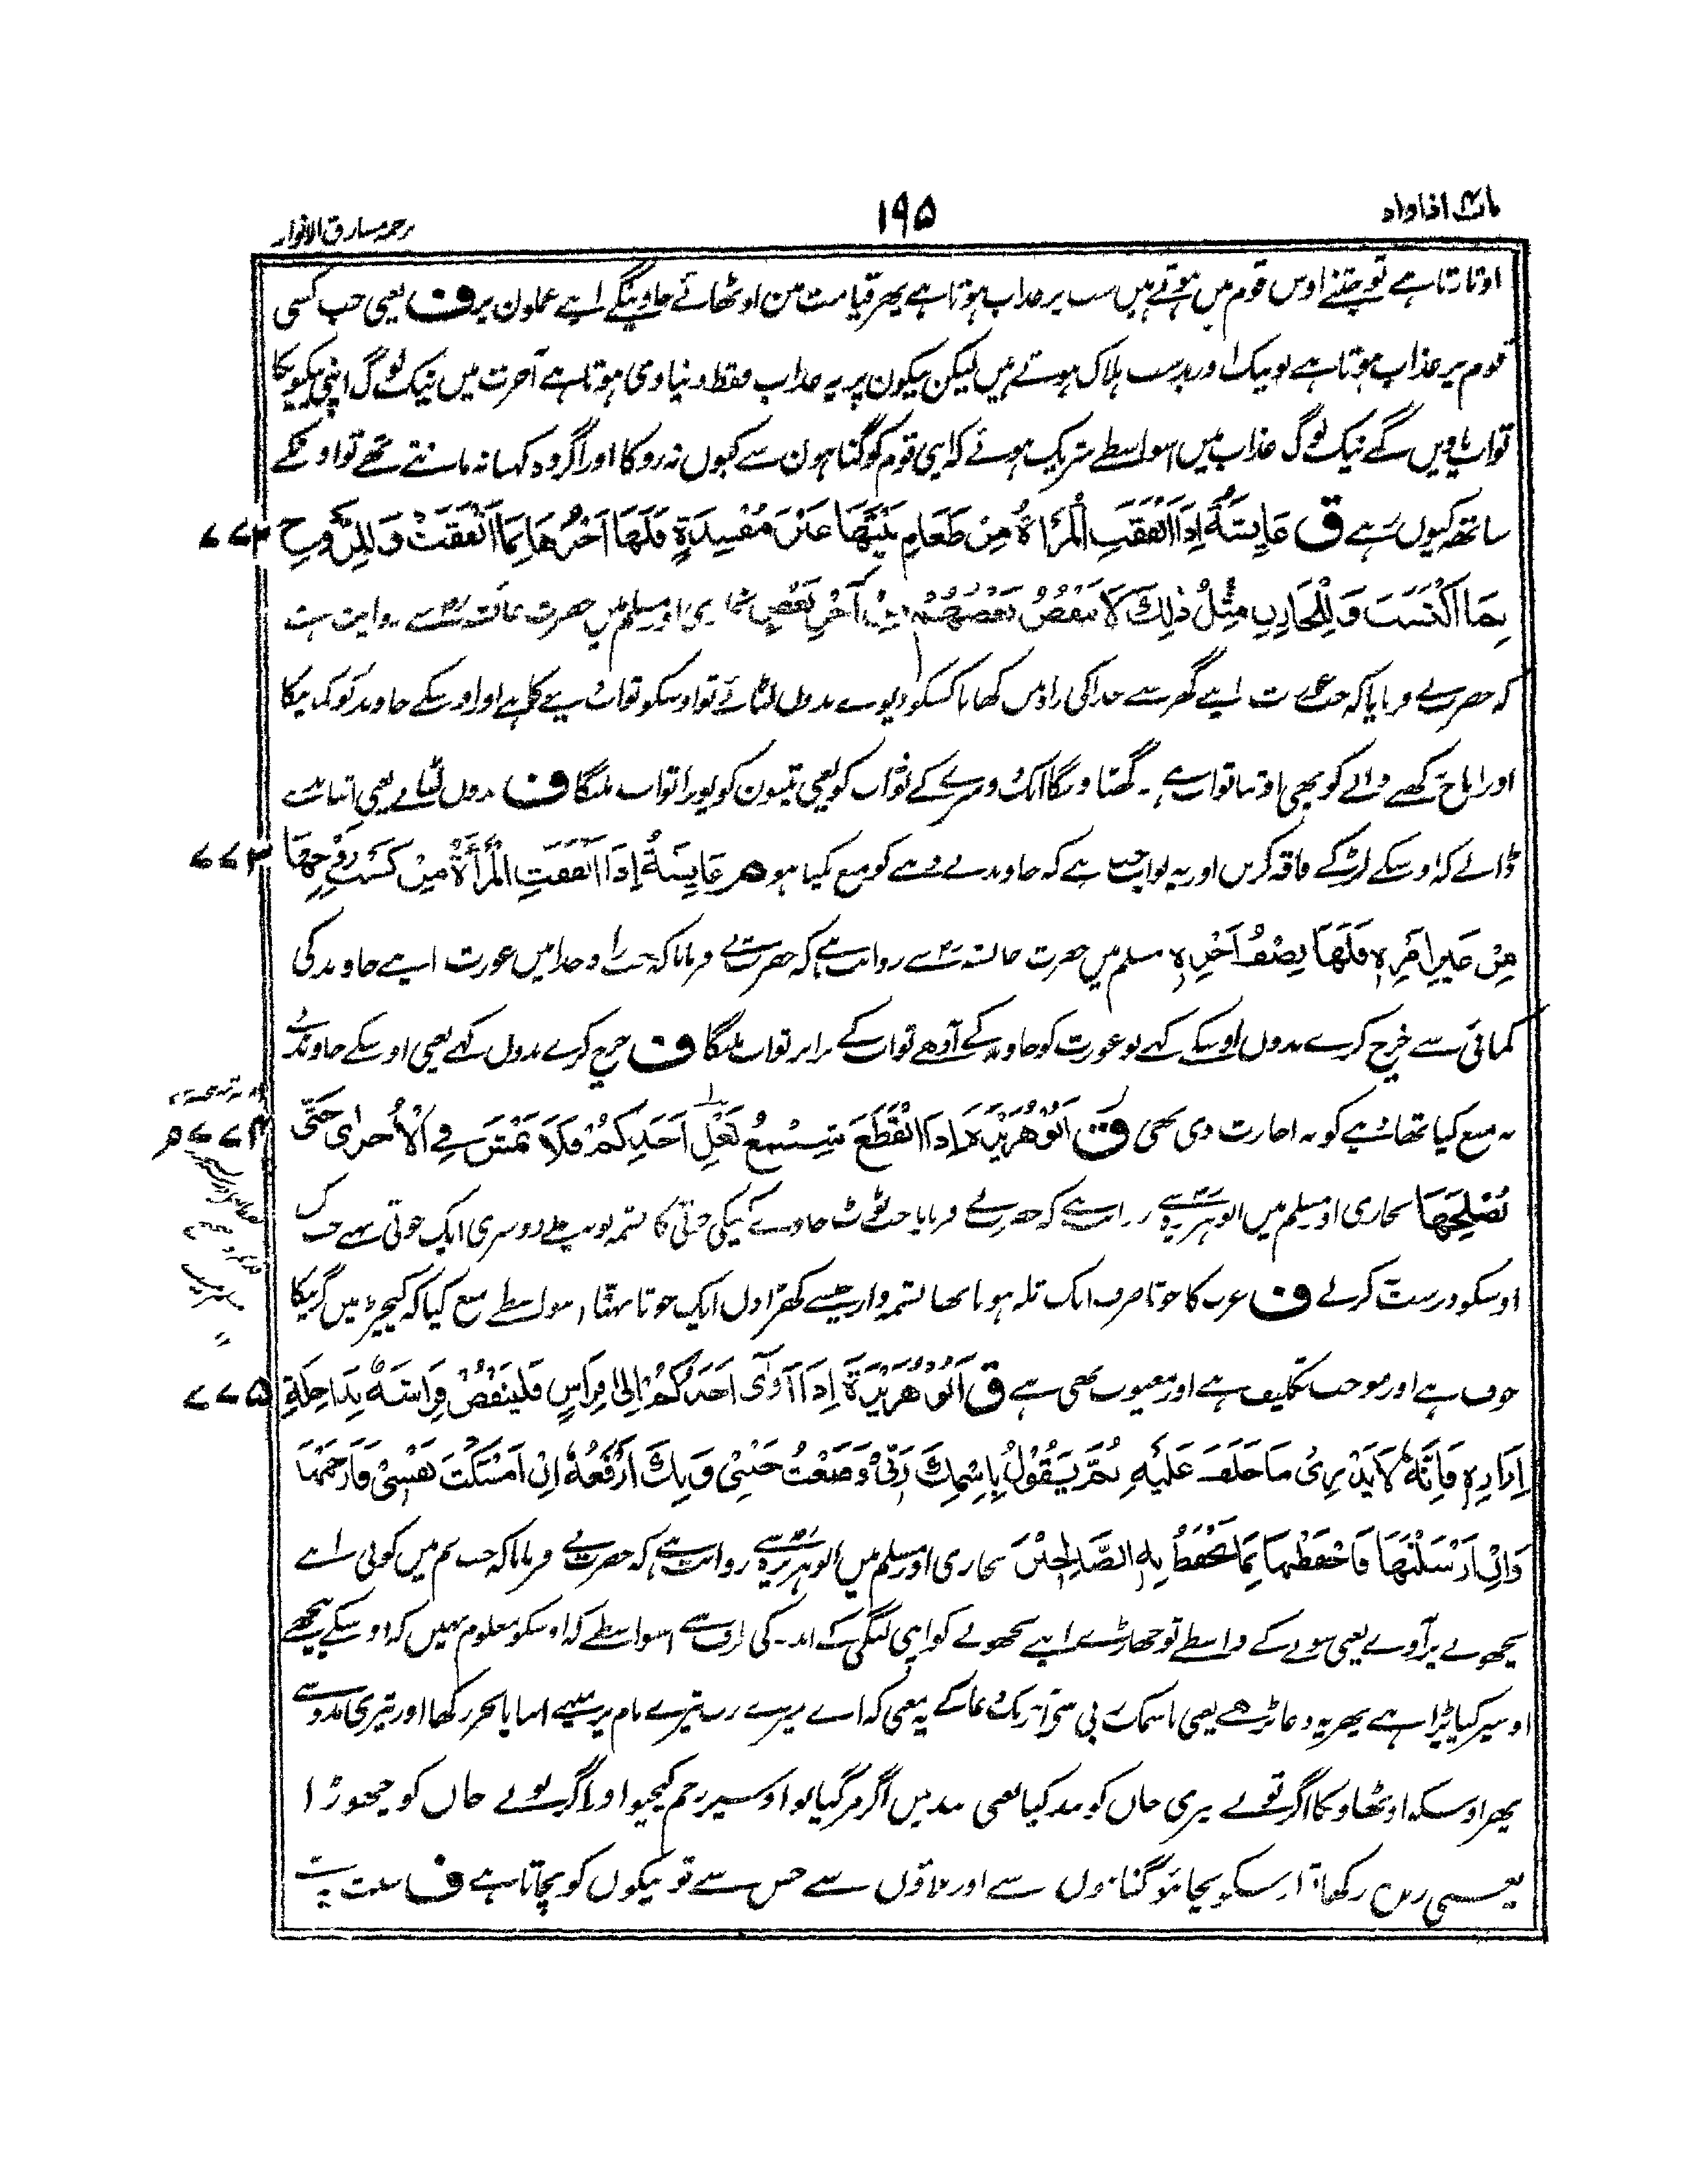 ۱۹۵
ترجمہ مشارق الانوار
اوتارتا ہے تو جتنے اوس قوم میں ہوتے ہیں سب پر عذاب ہوتا ہے پھر قیامت میں اوٹھائے جاوینگے اپنے عملون پر ف یعنی جب کسی
قوم پر عذاب ہوتا ہے تو نیک اور بد سب ہلاک ہوتے ہیں لیکن نیکون پر یہ عذاب فقط دنیاوی ہوتا ہے آخرت میں نیک لوگ اپنی نیکیونکا
ثواب پاویں گے نیک لوگ عذاب میں اسواسطے شریک ہوئے کہ اپنی قوم کو گناہون سے کیوں نہ روکا اور اگر وہ کہا نہ مانتے تھے تو اونکے
ساتھ کیوں رہے ق عَایِشَةُ اِذَا اَنْفَقَتِ الْمَرْاَةُ مِنْ طَعَامِ بَیْتِهَا غَیْرَ مُفْسِدَةٍ فَلَهَا اَجْرُهَا بِمَا اَنْفَقَتْ وَلِلزَّوْجِ ۷۷۲
بِمَا اکْتَسَبَ وَلِلْخَازِنِ مِثْلُ ذٰلِكَ لَا یَنْقُصُ بَعْضُهُمْ مِنْ اَجْرِ بَعْضٍ بخاری اور مسلم میں حضرت عائشہ سے روایت ہے
کہ حضرت نے فرمایا کہ جب عورت اپنے گھر سے خدا کی راہ میں کھانا کسکو دیوے بدوں لٹائے تو اوسکو ثواب دینے کا ہے اور اوسکے خاوند کو کمانیکا
اور اناج رکھنے والے کو بھی اوتنا ثواب ہے ۔ گھٹاویگا ایک دوسرے کے ثواب کو یعنی تینون کو پورا ثواب ملیگا ف بدوں لٹائے یعنی اتنا نہ دے
ڈالے کہ اوسکے لڑکے فاقہ کریں اور یہ ثواب جب ہے کہ خاوند نے دینے کو منع کیا ہو ھر عَایِشَةُ اِذَا اَنْفَقَتِ الْمَرْأَةُ مِنْ کَسْبِ زَوْجِهَا ۷۷۳
مِنْ غَیْرِ اَمْرِهٖ فَلَهَا نِصْفُ اَجْرِهٖ مسلم میں حضرت عائشہ سے روایت ہے کہ حضرت نے فرمایا کہ جب راہ خدا میں عورت اپنے خاوند کی
کمائی سے خرچ کرے بدوں اوسکے کہے تو عورت کو خاوند کے آدھے ثواب کے برابر ثواب ملیگا ف خرچ کرے بدوں کہے یعنی اوسکے خاوند نے
نہ منع کیا تھا نہ اجازت دی تھی ق اَبُوْ هُرَیْرَةَ اِذَا انْقَطَعَ شِسْعُ نَعْلِ اَحَدِکُمْ فَلَا یَمْشِ فِی الْاُخْرٰی حَتّٰی ۷۷۴
یُصْلِحَهَا بخاری اور مسلم میں ابوہریرہ سے روایت ہے کہ حضرت نے فرمایا جب ٹوٹ جاوے کسیکی جوتی کا تسمہ تو نہ چلے دوسری ایک جوتی سے جب تک
اوسکو درست کرلے ف عرب کا جوتا صرف ایک تلہ ہوتا تھا تسمہ وار جیسے کھڑاوں ایک جوتا پہننا اسواسطے منع کیا کہ کیچڑ میں گرنیکا
خوف ہے اور موجب تکلیف ہے اور معیوب بھی ہے ق اَبُوْ هُرَیْرَةَ اِذَا آوٰی اَحَدُکُمْ اِلٰی فِرَاشٍ فَلْیَنْفُضْ فِرَاشَهٗ بِدَاخِلَةِ ۷۷۵
اِزَارِهٖ فَاِنَّهٗ لَا یَدْرِیْ مَا خَلَفَ عَلَیْهِ ثُمَّ یَقُوْلُ بِاسْمِكَ رَبِّیْ وَضَعْتُ جَنْبِیْ وَبِكَ اَرْفَعُهٗ اِنْ اَمْسَکْتَ نَفْسِیْ فَارْحَمْهَا
وَاِنْ اَرْسَلْتَهَا فَاحْفَظْهَا بِمَا تَحْفَظُ بِهِ الصَّالِحِیْنَ بخاری اور مسلم میں ابوہریرہ سے روایت ہے کہ حضرت نے فرمایا کہ جب تم میں کوئی اپنے
بچھونے پر آوے یعنی سونے کے واسطے تو جھاڑے اپنے بچھونے کو اپنی لنگی کے اندر کی طرف سے اسواسطے کہ اوسکو معلوم نہیں کہ اوسکے پیچھے
اوسپر کیا پڑا ہے پھر یہ دعا پڑھے یعنی باسمک ربی سے آخر تک دعا کے یہ معنی کہ اے میرے رب تیرے نام پر مینے اپنا پانجر رکھا اور تیری مدد سے
پھر اوسکو اوٹھاونگا اگر تونے میری جان کو بند کیا یعنی نیند میں اگر مر گیا تو اوسپر رحم کیجیو اور اگر تونے جان کو چھوڑا
یعنی رکھا تو اوسکو بچائیو گناہوں سے اور بلاؤں سے جس سے تو نیکوں کو بچاتا ہے ف